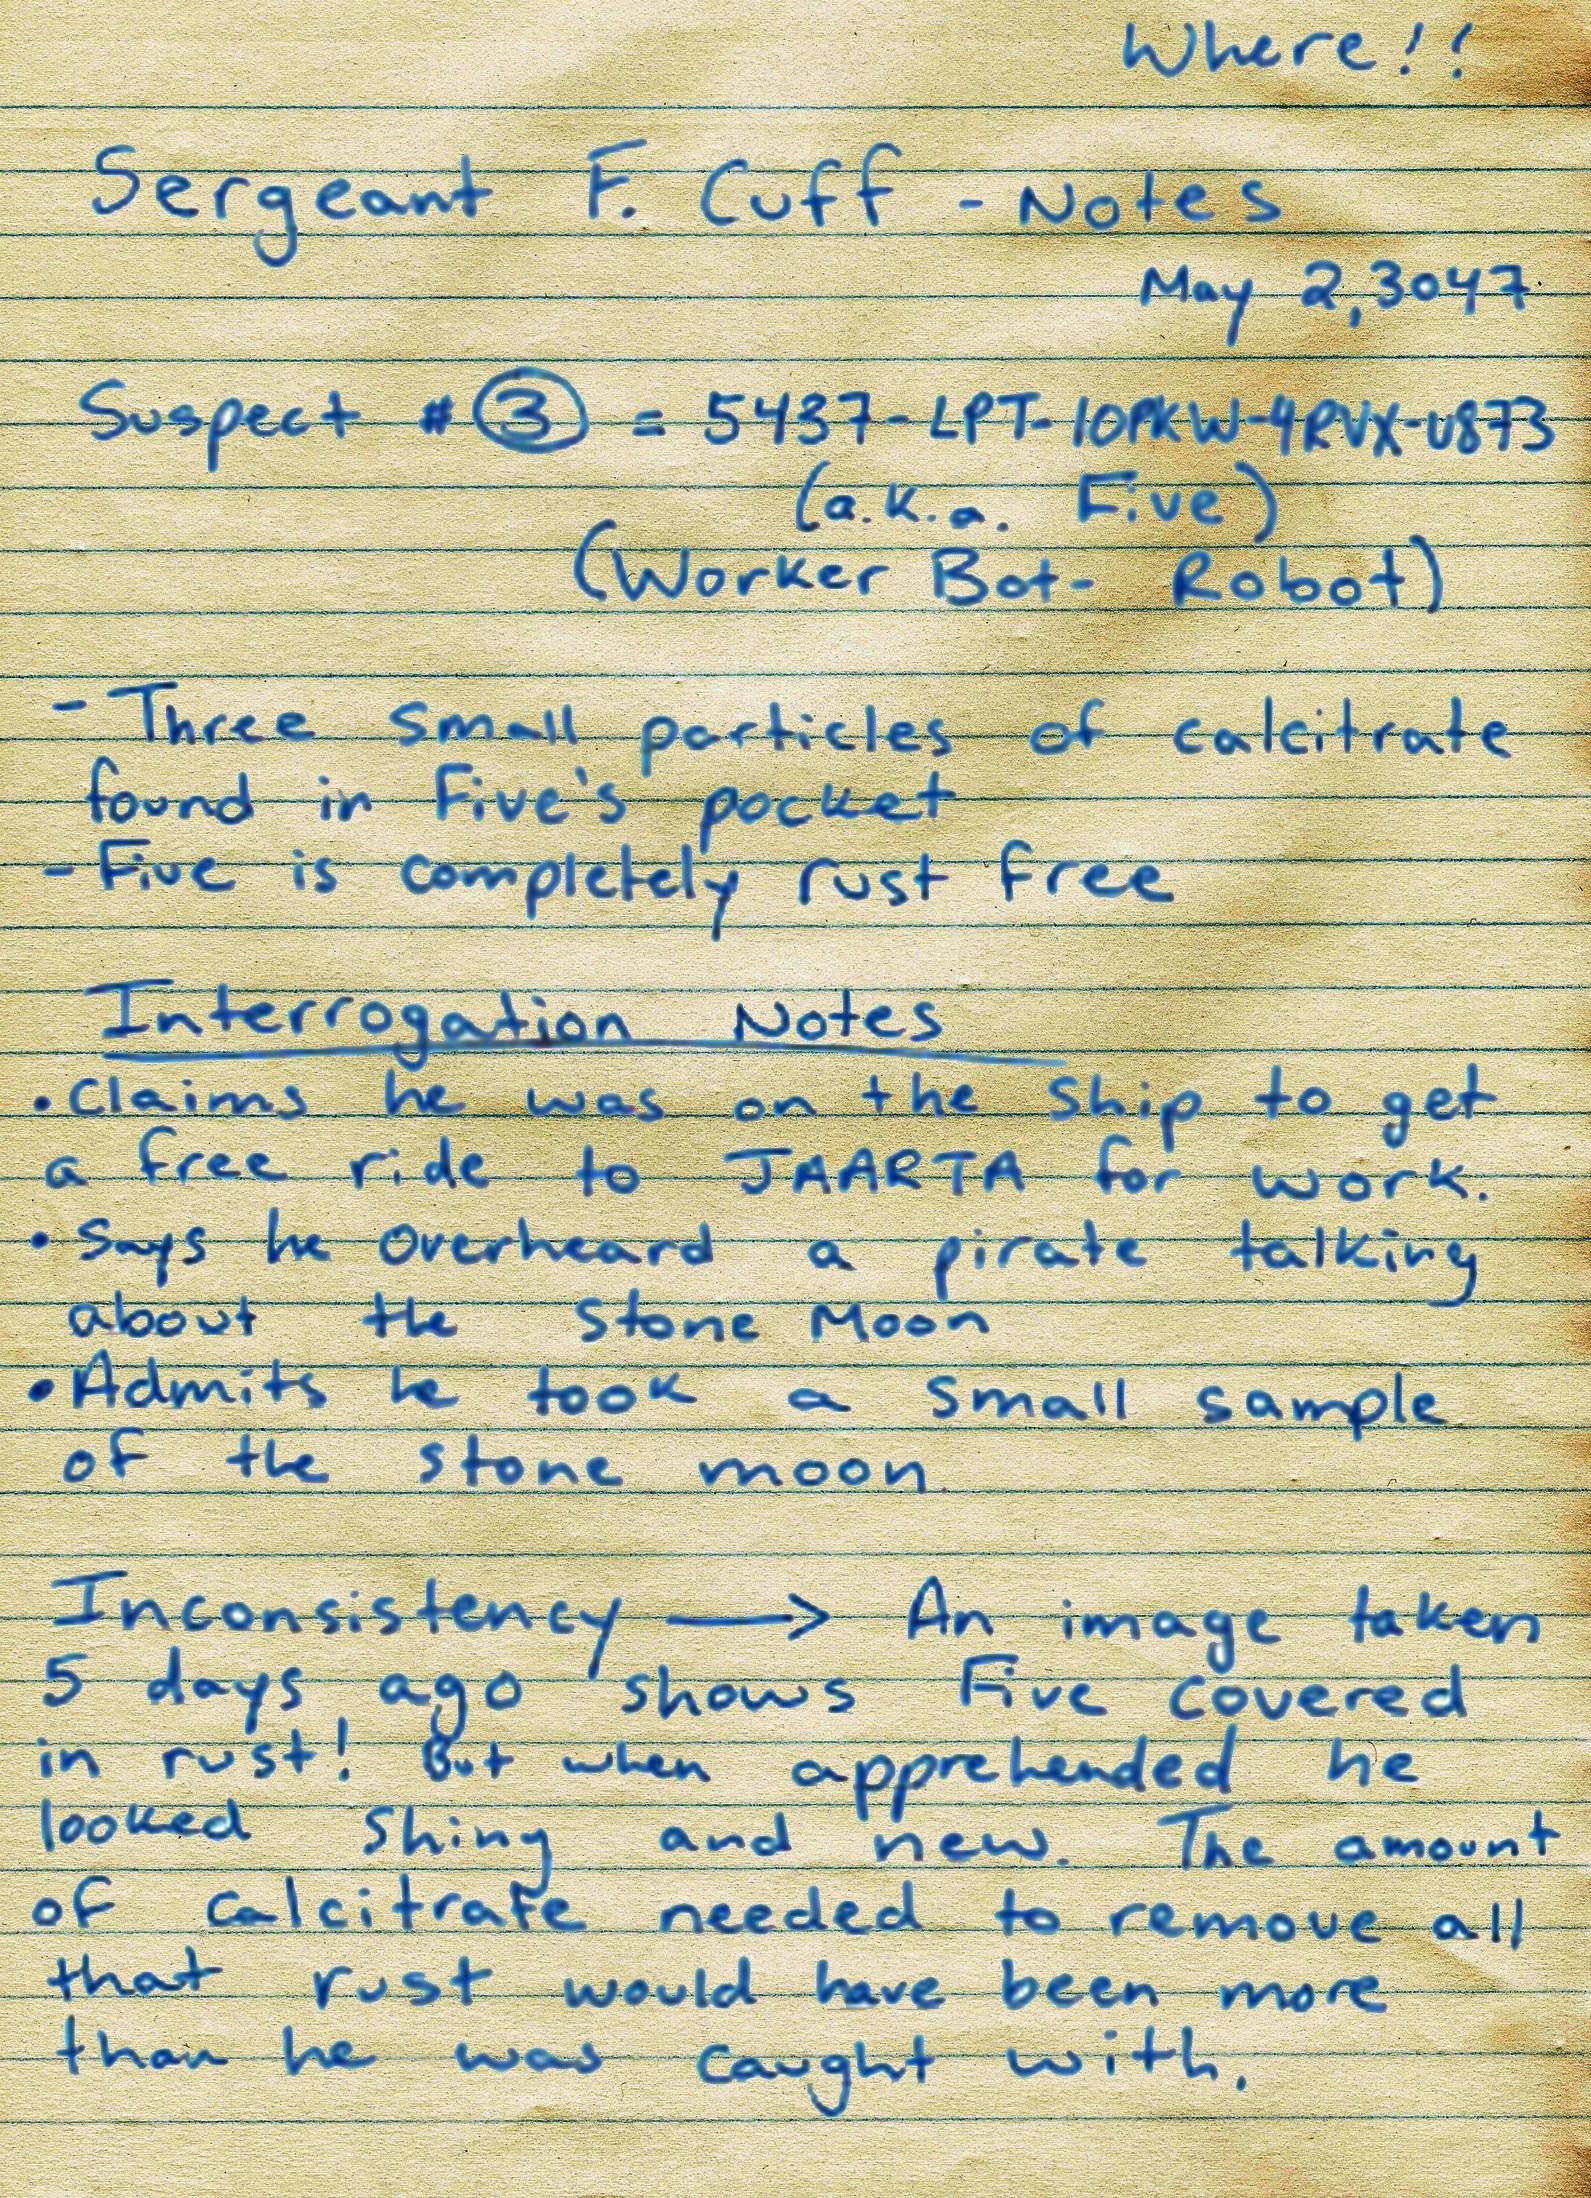 Where!!
Sergeant F. Cuff - Notes
May 2, 3047
Suspect # 3 = 5437-LPT-10PKW-4RVX-U873
(a.k.a. Five)
(Worker Bot- Robot)
- Three small particles of calcitrate
found in Five's pocket
- Five is completely rust free
Interrogation Notes
• Claims he was on the ship to get
a free ride to JAARTA for work.
• Says he overheard a pirate talking
about the Stone Moon
• Admits he took a small sample
of the stone moon
Inconsistency → An image taken
5 days ago shows Five covered
in rust! But when apprehended he
looked shiny and new. The amount
of calcitrate needed to remove all
that rust would have been more
than he was caught with.